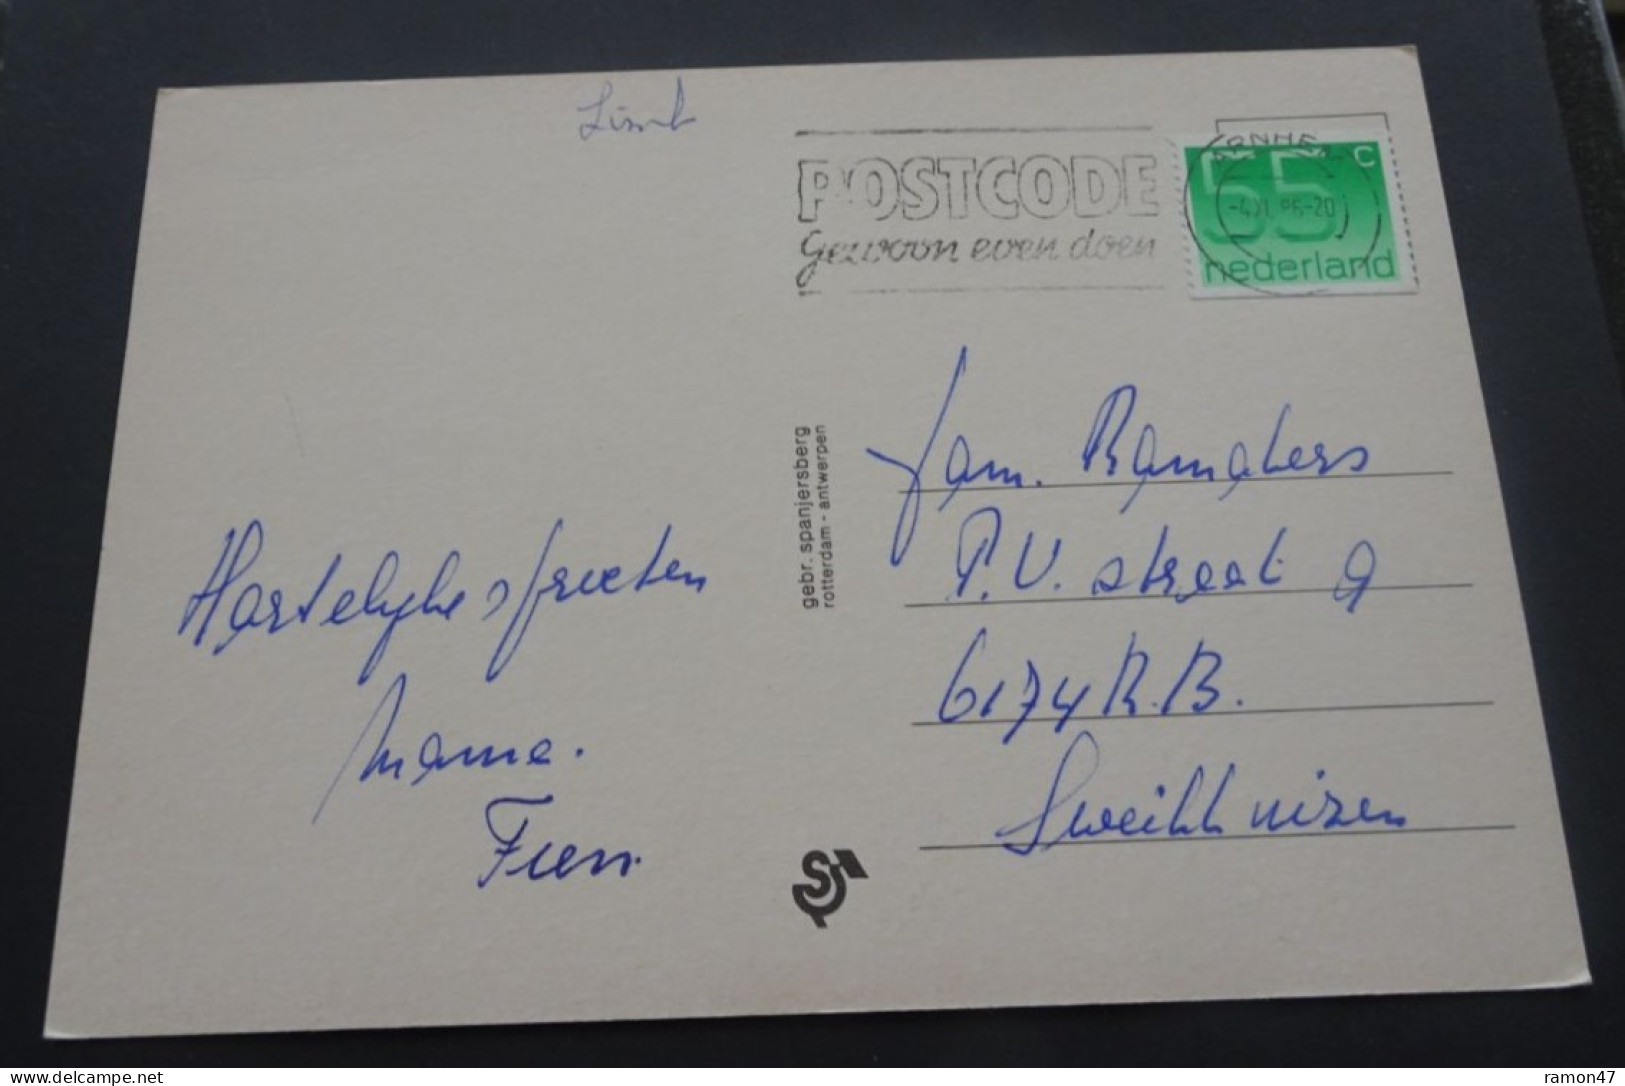 Limb
POSTCODE
gewoon even doen
ARNHEM
-4.XI.86-20
55 c
nederland
gebr. spanjersberg
rotterdam - antwerpen
Hartelyke groeten
Mama.
Fien.
Fam. Ramakers
P.V. straat 9
6174 R.B.
Sweikhuizen
S
delcampe.net
ramon47